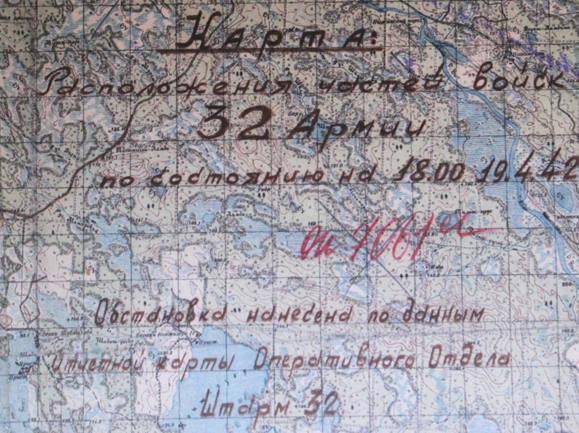 Карта:
Расположения частей войск
32 Армии
по состоянию на 18.00 19.4.42
оп 7061
Обстановка нанесена по данным
отчетной карты Оперативного Отдела
Штарм 32